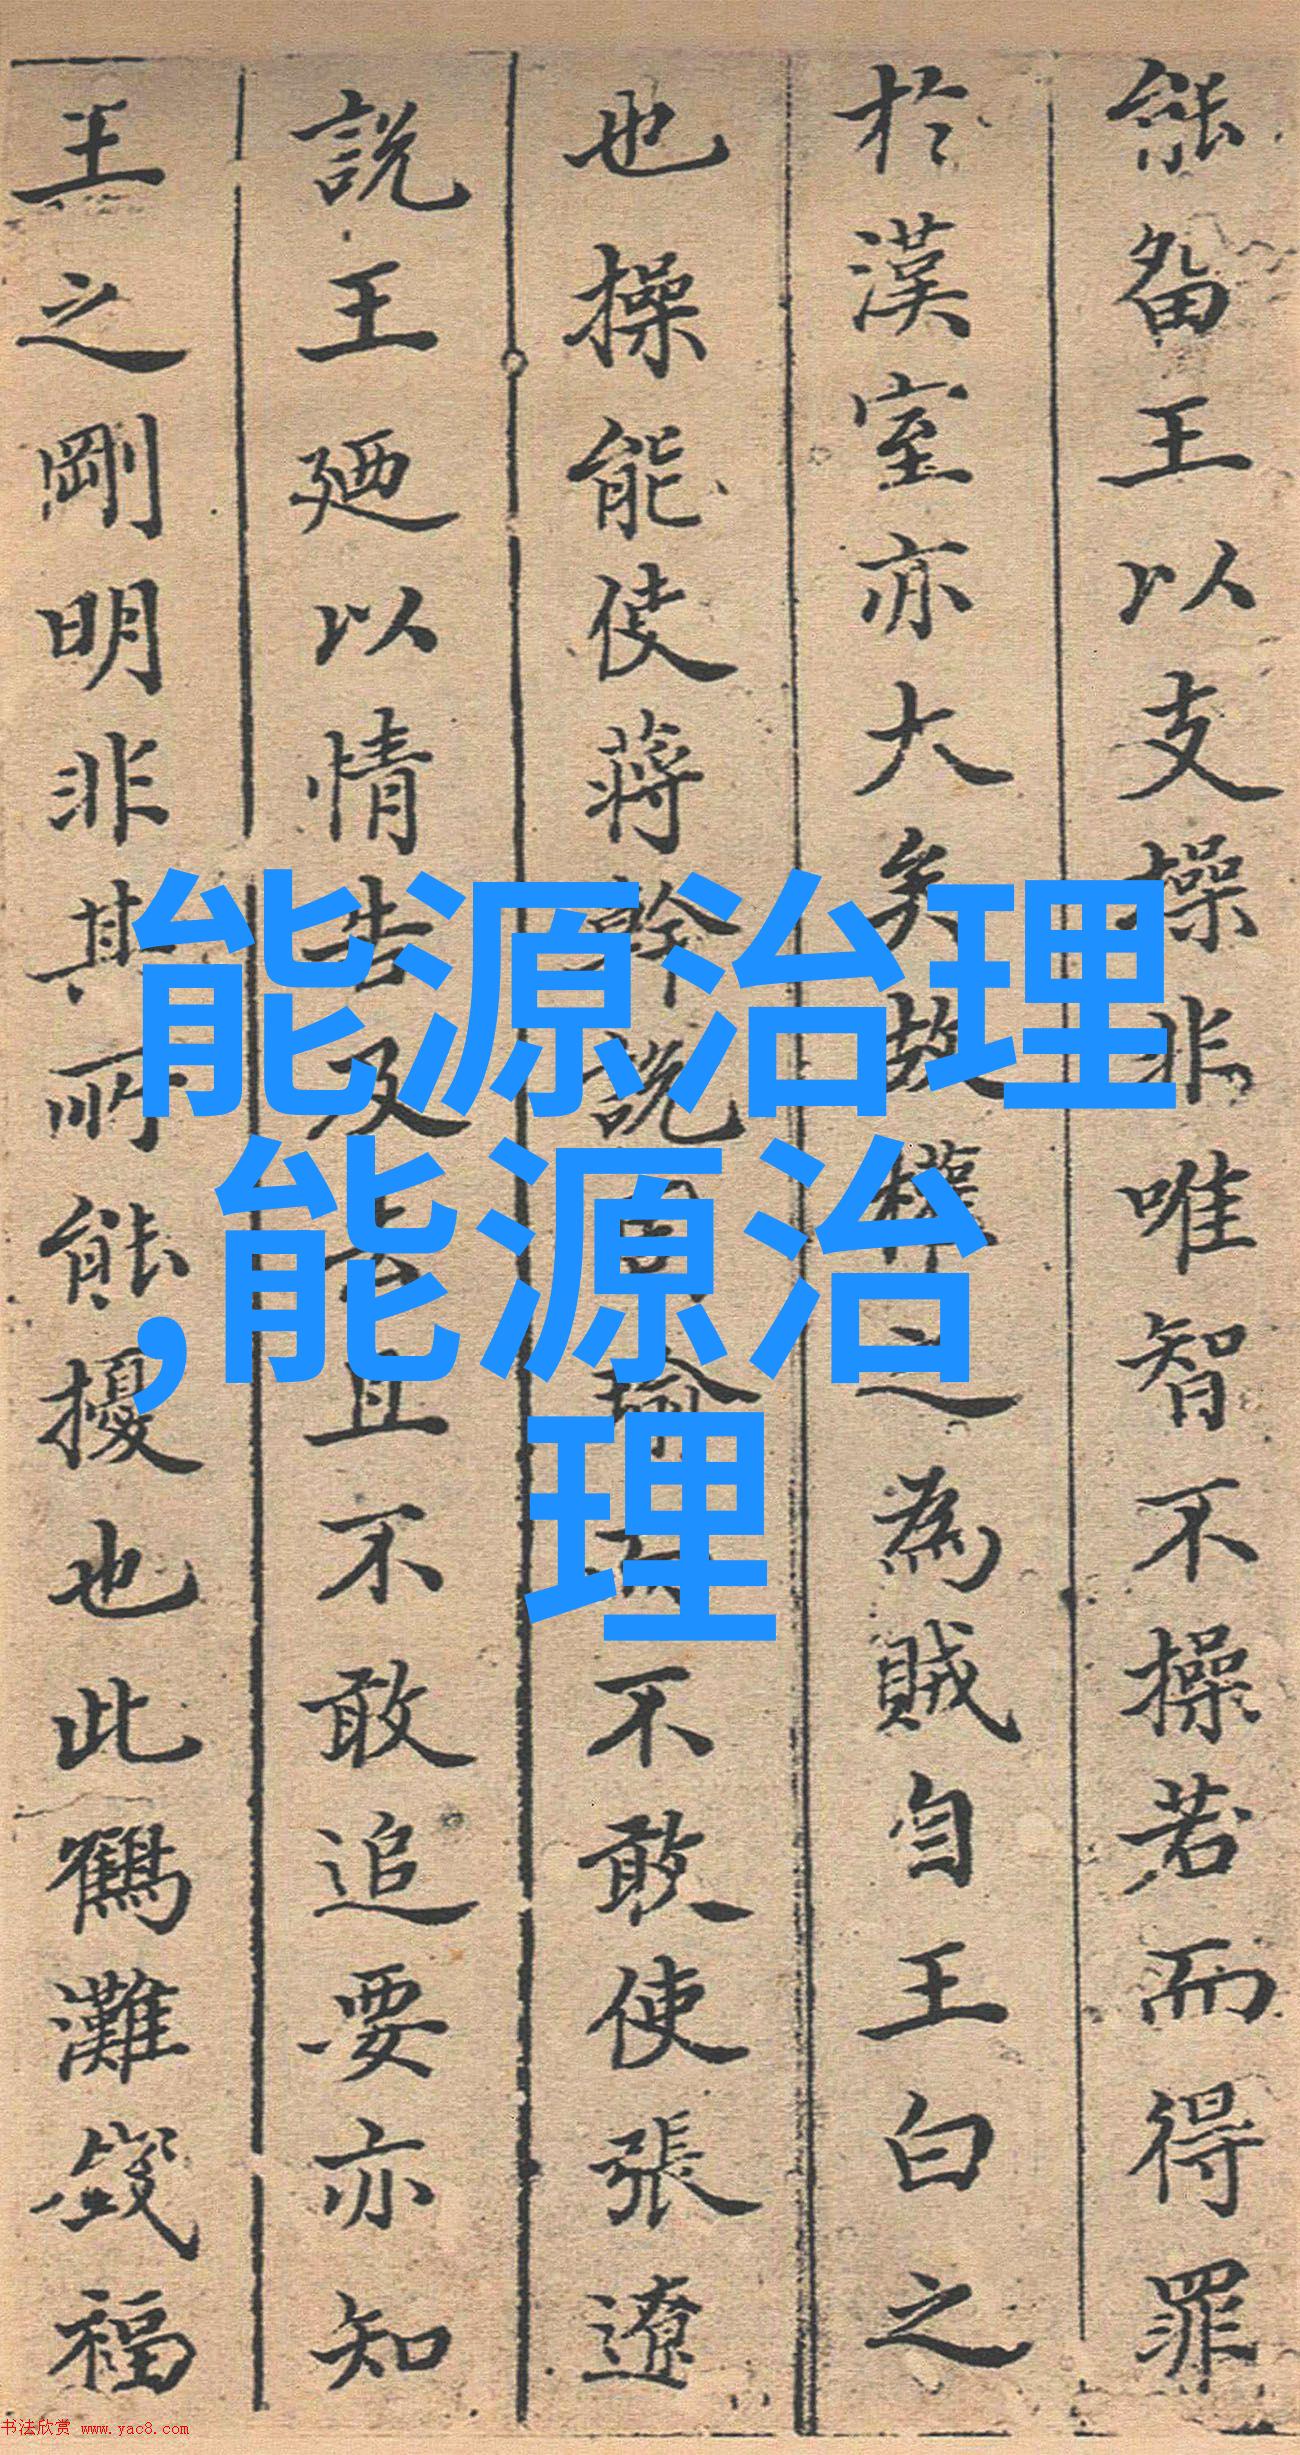 能留王以支操非唯智不操若而得罪
於漢室亦大矣故權之為賊自王白之
也操能使蔣幹說瑜不敢使張遼
說王廼以情告及且不敢追要亦知
王之剛明非其所能擾也此鶴灘錢福
能源治理
,能源治
理
书法欣赏 www.yac8.com